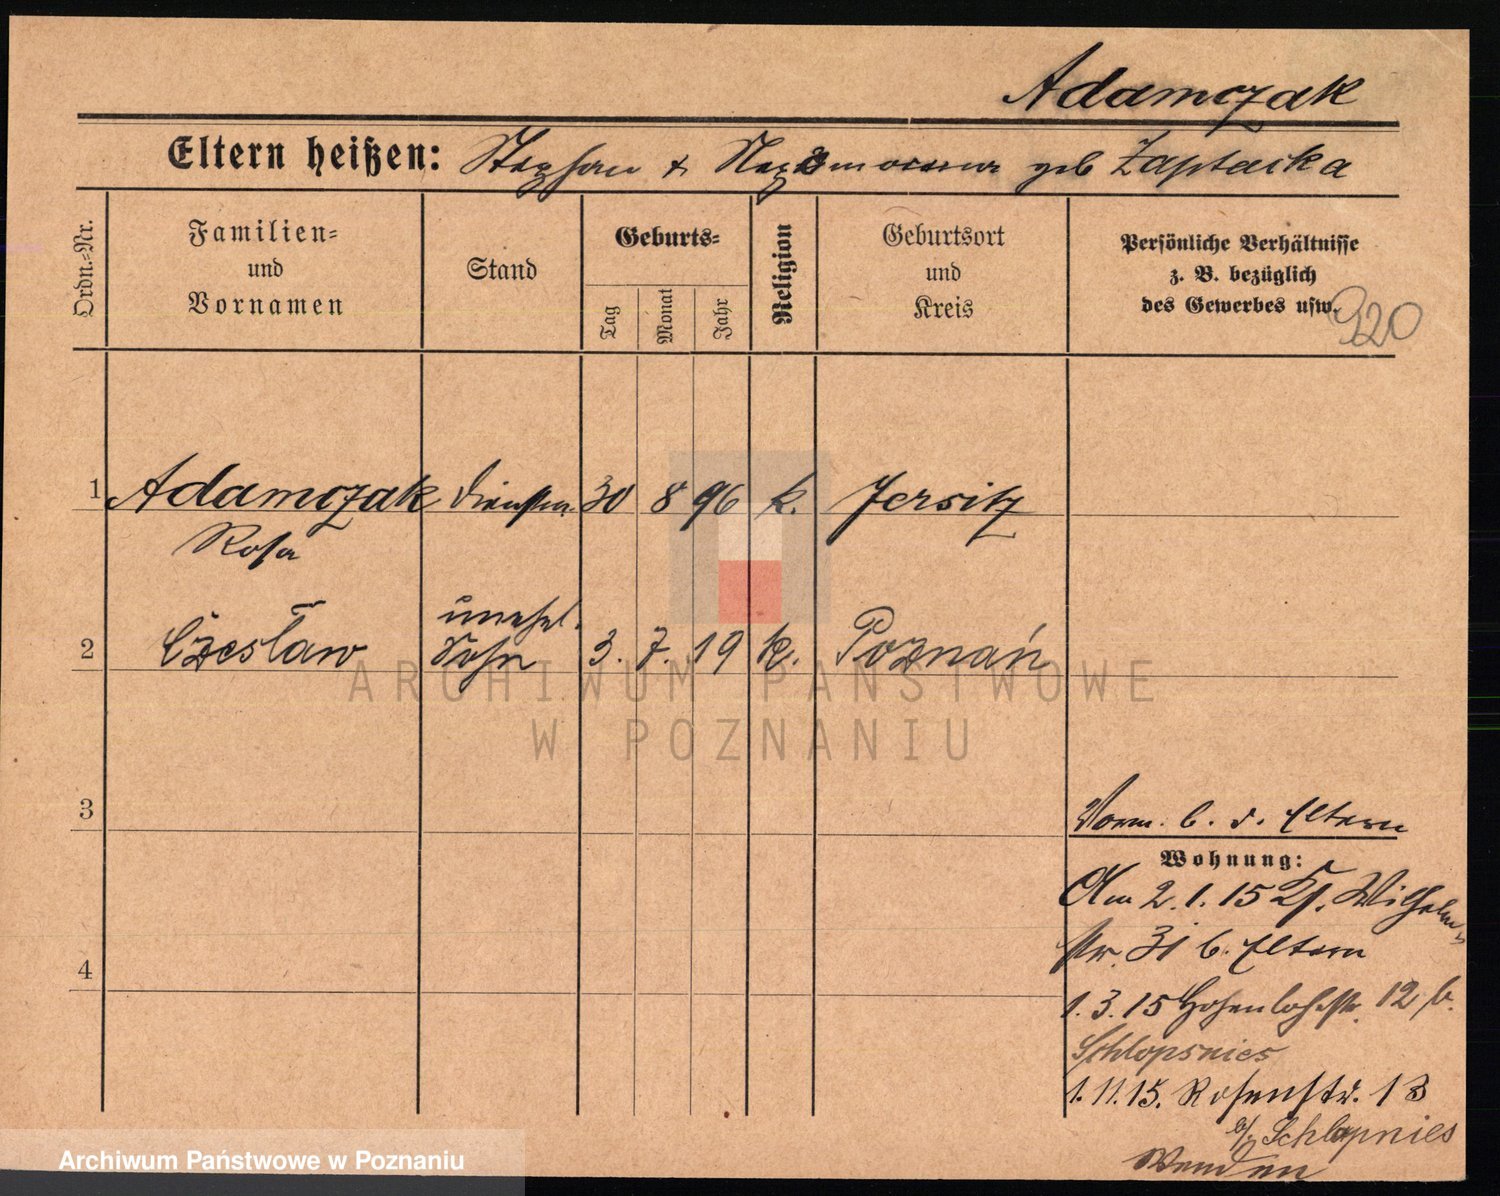 Adamczak
Eltern heißen: Stephan & geb Zaptacka
Ordn.-Nr.
Familien-
und
Vornamen
Stand
Geburts-
Tag
Monat
Jahr
Religion
Geburtsort
und
Kreis
Persönliche Verhältnisse
z. B. bezüglich
des Gewerbes usw.
320
1 Adamczak 30 8 96 k. Jersitz
Rosa
unehel.
2 Czesław Sohn 3. 7. 19 k. Poznań
3
4
Vorm. b. d. Eltern
Wohnung:
Am 2.1.15 Wilhelm
str. 31 b. Eltern
1.3.15 Hohenlohestr. 12 b.
Schlopsnies
1.11.15. Rosenstr. 13
b/ Schlapnies
Wenden
ARCHIWUM PAŃSTWOWE
W POZNANIU
Archiwum Państwowe w Poznaniu